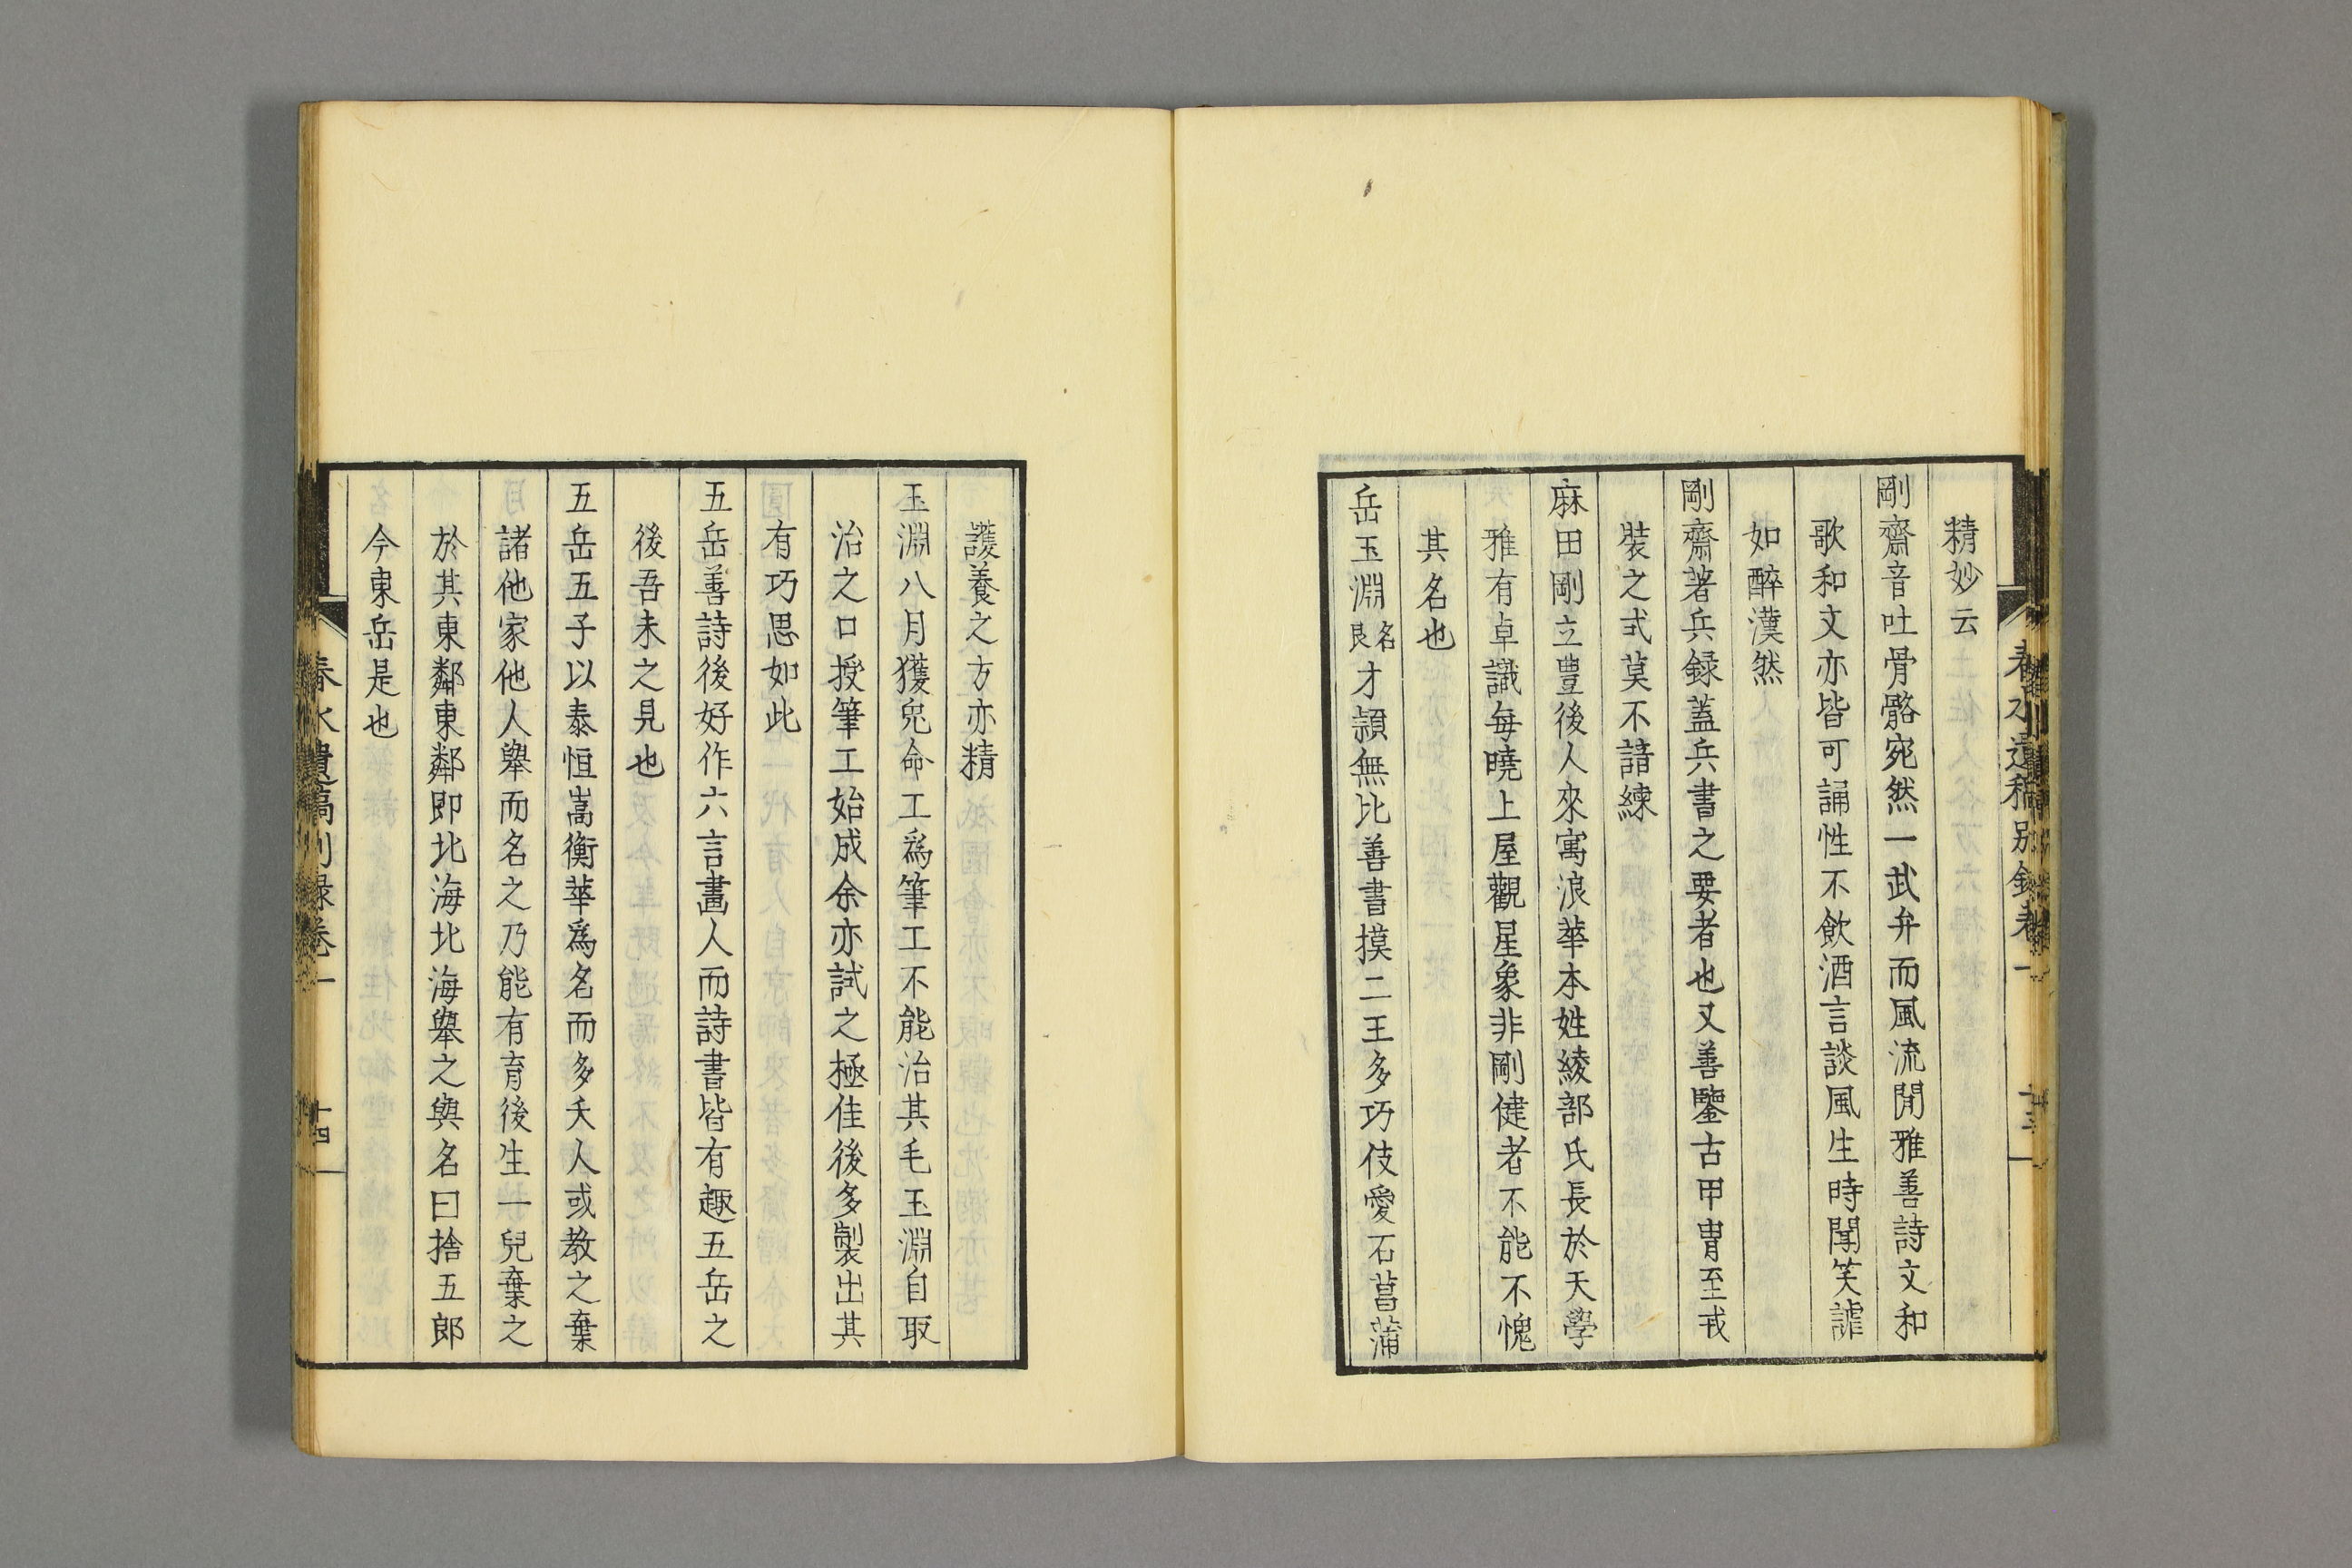 精妙云
剛齋音吐骨骼宛然一武弁而風流閒雅善詩文和
歌和文亦皆可誦性不飲酒言談風生時聞笑謔
如醉漢然
剛齋著兵録蓋兵書之要者也又善鑒古甲冑至戎
裝之式莫不諳練
麻田剛立豐後人來寓浪華本姓綾部氏長於天學
雅有卓識每曉上屋觀星象非剛健者不能不愧
其名也
岳玉淵名艮才頴無比善書摸二王多巧伎愛石菖蒲
春水遺稿別録卷一
十三
護養之方亦精
玉淵八月獲兔命工爲筆工不能治其毛玉淵自取
治之口授筆工始成余亦試之極佳後多製出其
有巧思如此
五岳善詩後好作六言畵人而詩書皆有趣五岳之
後吾未之見也
五岳五子以泰恒嵩衡華爲名而多夭人或教之棄
諸他家他人擧而名之乃能有育後生一兒棄之
於其東鄰東鄰即北海北海擧之與名曰捨五郎
今東岳是也
春水遺稿別録卷一
十四